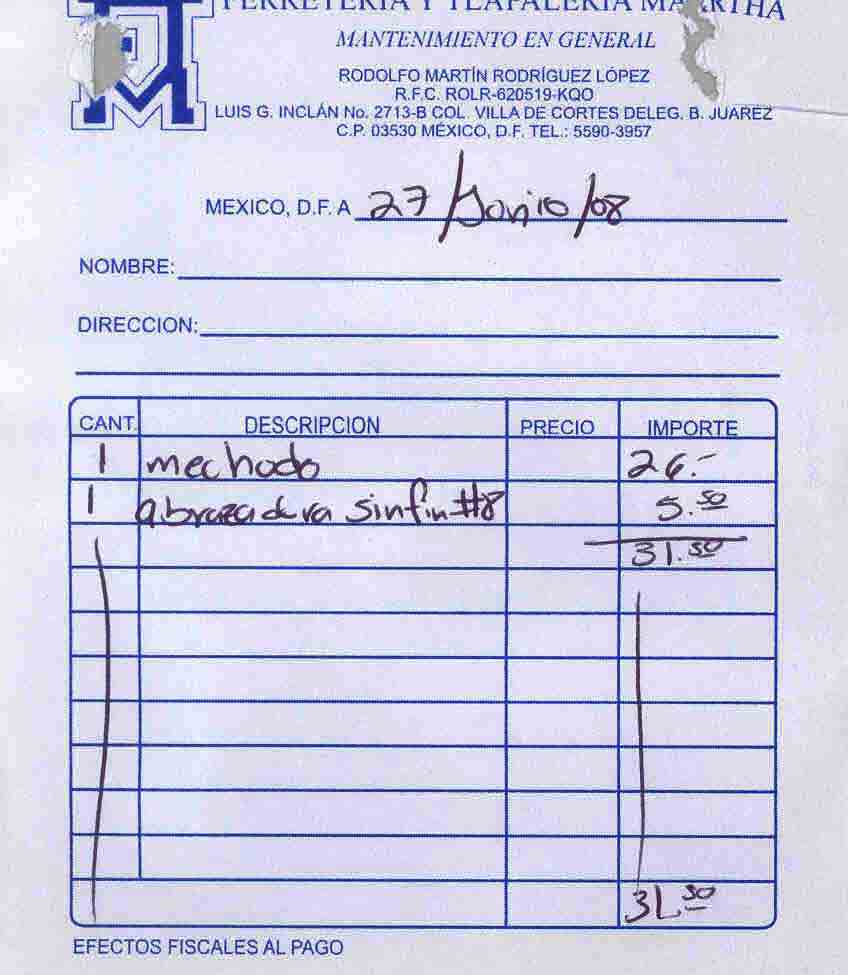 FERRETERIA Y TLAPALERIA MARTHA
MANTENIMIENTO EN GENERAL
RODOLFO MARTÍN RODRÍGUEZ LÓPEZ
R.F.C. ROLR-620519-KQO
LUIS G. INCLÁN No. 2713-B COL. VILLA DE CORTES DELEG. B. JUAREZ
C.P. 03530 MÉXICO, D.F. TEL.: 5590-3957
MEXICO, D.F. A 27/Junio/08
NOMBRE:
DIRECCION:
CANT. DESCRIPCION PRECIO IMPORTE
1 mechudo 26.-
1 abrazadera sinfin #8 5.50
31.50
31.50
EFECTOS FISCALES AL PAGO